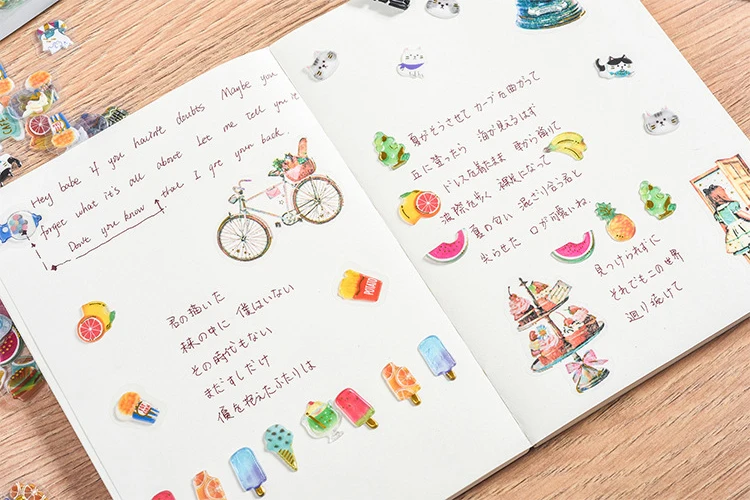 Hey babe if you havin't doubts Maybe you
forget what it's all about Let me tell you it
Don't you know that I got your back.
君の描いた
未来の中に 僕はいない
その時代もない
まだすしだけ
僕を抱えたふたりは
POTATO
夏がそうさせて カーブを曲がって
丘に登ったら 海が見えるはず
ドレスを着たまま 駅から降りて
波際を歩く 裸足になって
夏の匂い 混ざり合う君と
尖らせた 口が可愛いね
見つけられずに
それでもこの世界
廻り続けて